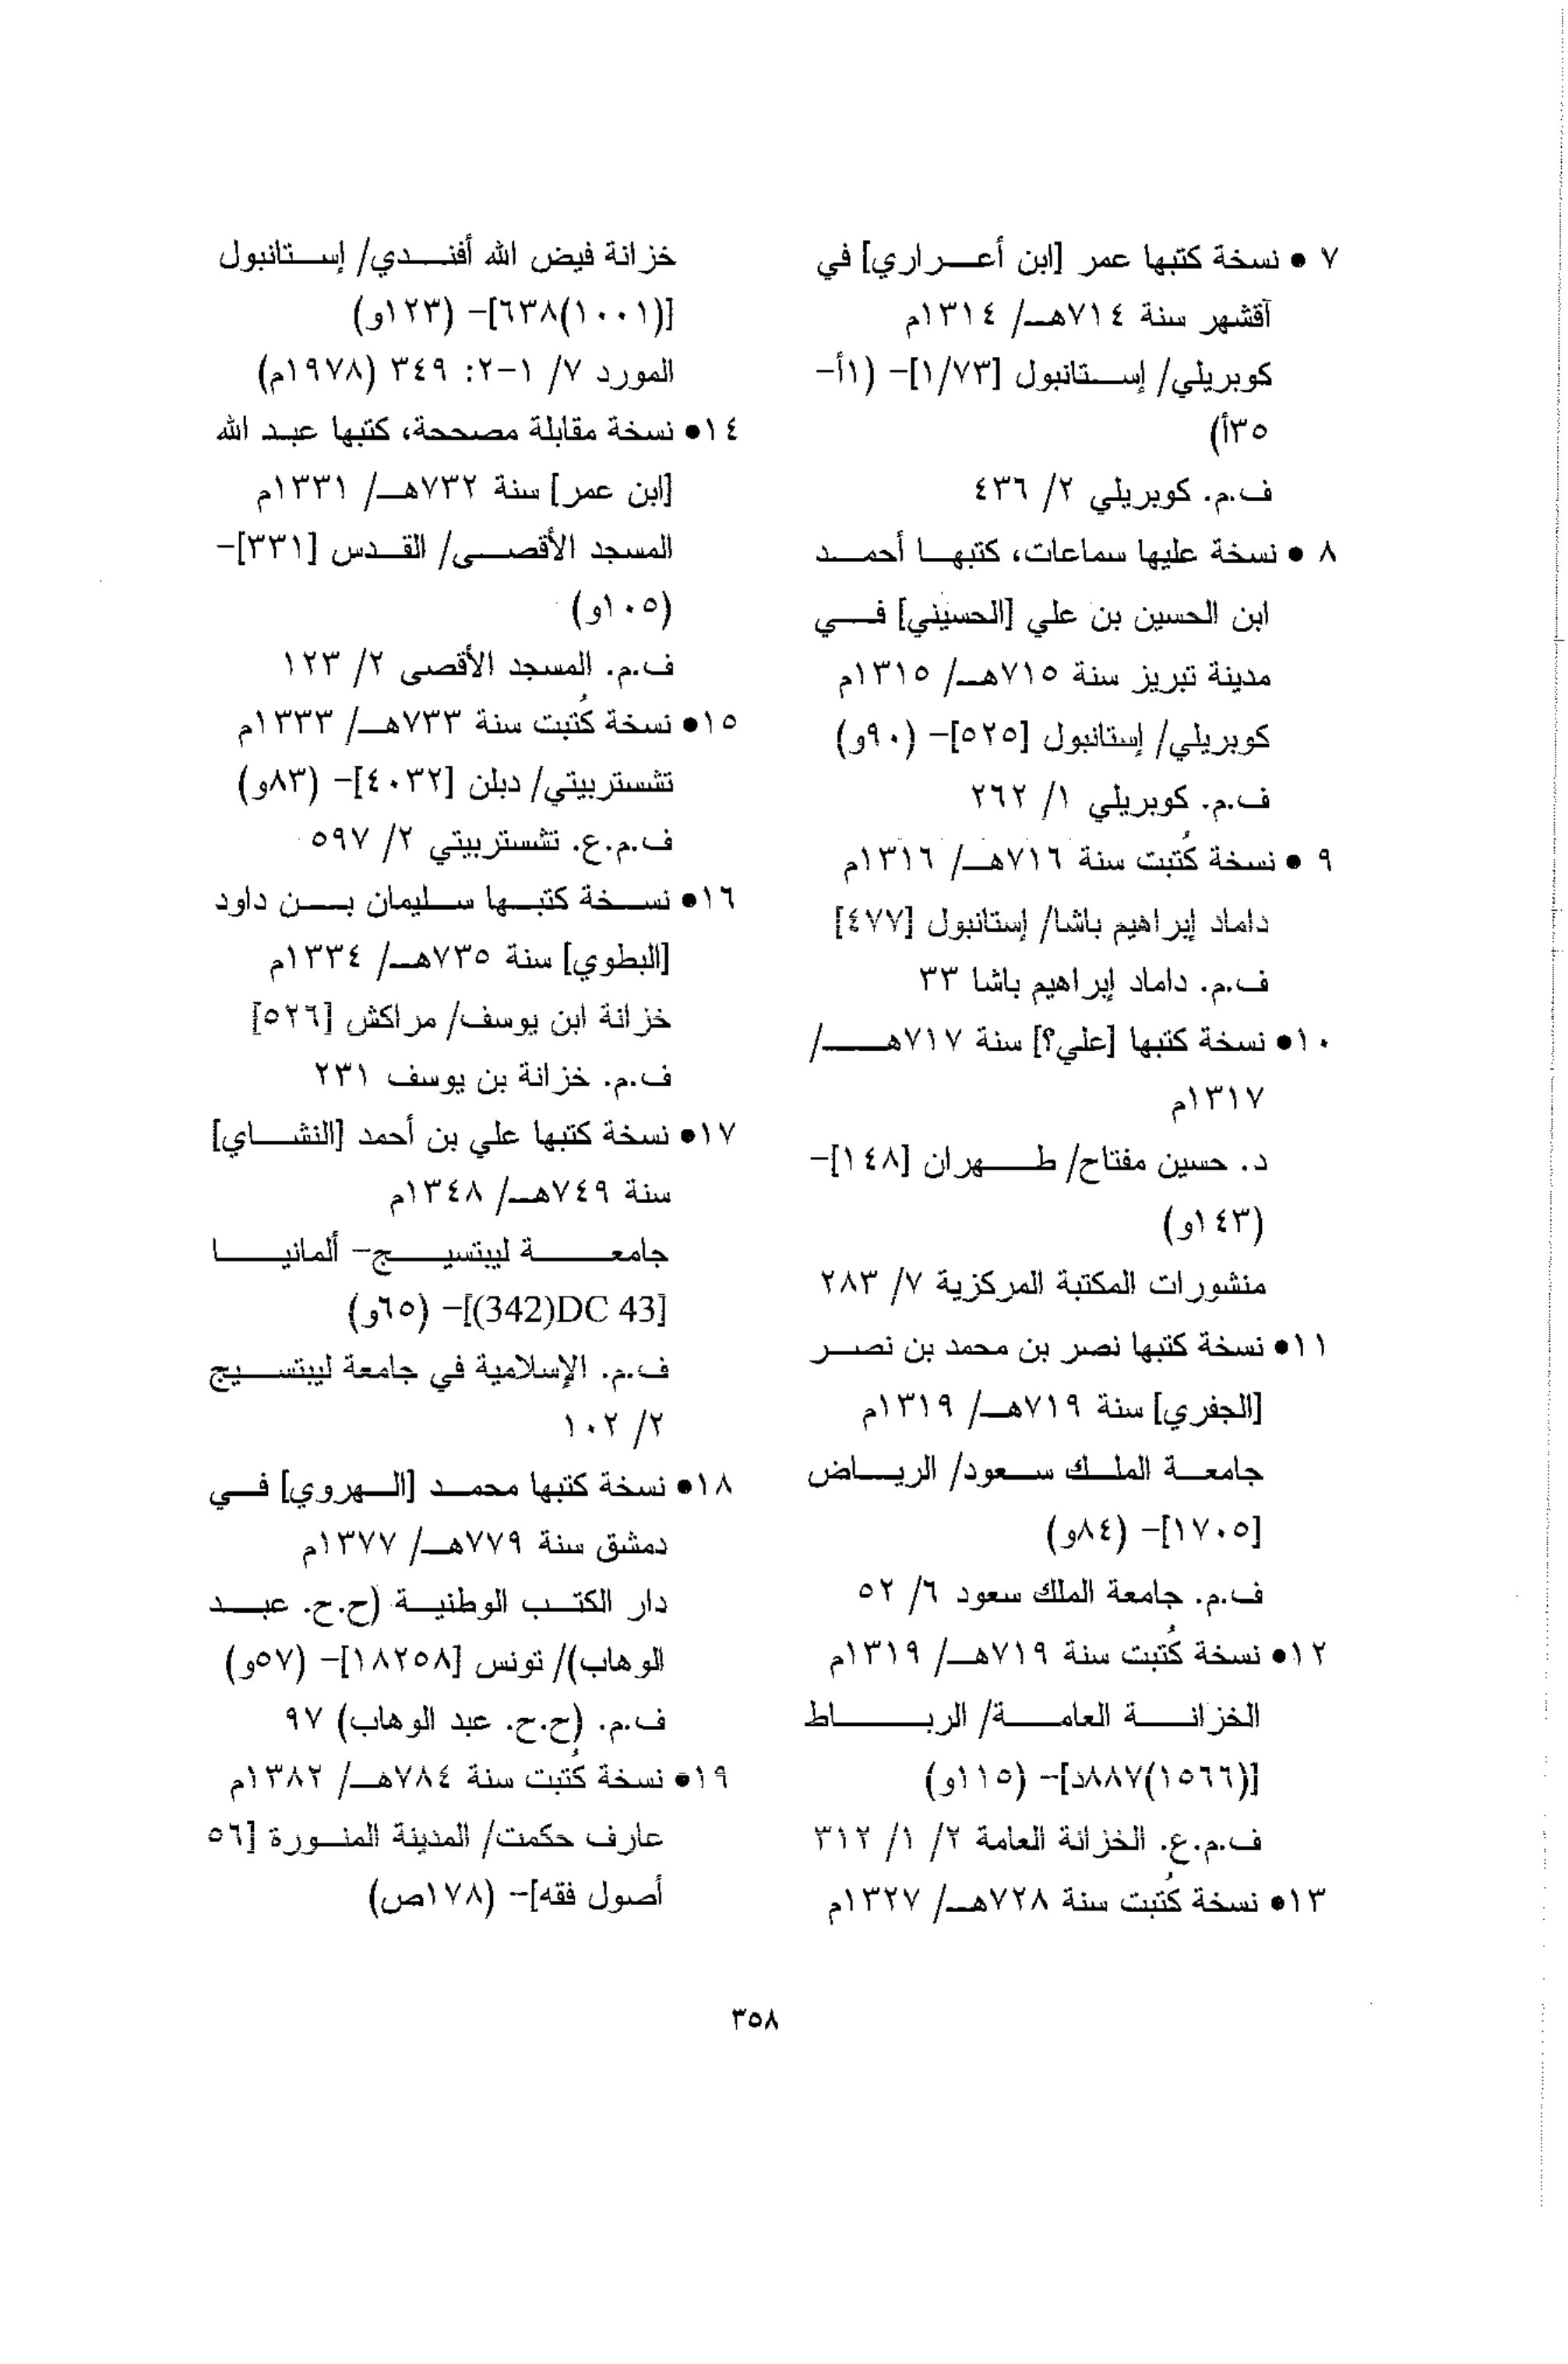 ٧ • نسخة كتبها عمر [ابن أعراري] في
آقشهر سنة ٧١٤هـ/ ١٣١٤م
كوبريلي/ إستانبول [١/٧٣]- (١أ-
٣٥أ)
ف.م. كوبريلي ٢/ ٤٣٦
٨ • نسخة عليها سماعات، كتبها أحمد
ابن الحسين بن علي [الحسيني] في
مدينة تبريز سنة ٧١٥هـ/ ١٣١٥م
كوبريلي/ إستانبول [٥٢٥]- (٩٠و)
ف.م. كوبريلي ١/ ٢٦٢
٩ • نسخة كُتبت سنة ٧١٦هـ/ ١٣١٦م
داماد إبراهيم باشا/ إستانبول [٤٧٧]
ف.م. داماد إبراهيم باشا ٣٣
١٠• نسخة كتبها [علي؟] سنة ٧١٧هـ/
١٣١٧م
د. حسين مفتاح/ طهران [١٤٨]-
(١٤٣و)
منشورات المكتبة المركزية ٧/ ٢٨٣
١١• نسخة كتبها نصر بن محمد بن نصر
[الجفري] سنة ٧١٩هـ/ ١٣١٩م
جامعة الملك سعود/ الرياض
[١٧٠٥]- (٨٤و)
ف.م. جامعة الملك سعود ٦/ ٥٢
١٢• نسخة كُتبت سنة ٧١٩هـ/ ١٣١٩م
الخزانة العامة/ الرباط
[(١٥٦٦)٨٨٧د]- (١١٥و)
ف.م.ع. الخزانة العامة ٢/ ١/ ٣١٢
١٣• نسخة كُتبت سنة ٧٢٨هـ/ ١٣٢٧م
خزانة فيض الله أفندي/ إستانبول
[(١٠٠١)٦٣٨]- (١٢٣و)
المورد ٧/ ١-٢: ٣٤٩ (١٩٧٨م)
١٤• نسخة مقابلة مصححة، كتبها عبد الله
[ابن عمر] سنة ٧٣٢هـ/ ١٣٣١م
المسجد الأقصى/ القدس [٣٣١]-
(١٠٥و)
ف.م. المسجد الأقصى ٢/ ١٢٣
١٥• نسخة كُتبت سنة ٧٣٣هـ/ ١٣٣٣م
تشستربيتي/ دبلن [٤٠٣٢]- (٨٣و)
ف.م.ع. تشستربيتي ٢/ ٥٩٧
١٦• نسخة كتبها سليمان بن داود
[البطوي] سنة ٧٣٥هـ/ ١٣٣٤م
خزانة ابن يوسف/ مراكش [٥٢٦]
ف.م. خزانة بن يوسف ٢٣١
١٧• نسخة كتبها علي بن أحمد [النشاي]
سنة ٧٤٩هـ/ ١٣٤٨م
جامعة ليبتسيج- ألمانيا
[(342)DC 43]- (٦٥و)
ف.م. الإسلامية في جامعة ليبتسيج
٢/ ١٠٢
١٨• نسخة كتبها محمد [الهروي] في
دمشق سنة ٧٧٩هـ/ ١٣٧٧م
دار الكتب الوطنية (ح.ح. عبد
الوهاب)/ تونس [١٨٢٥٨]- (٥٧و)
ف.م. (ح.ح. عبد الوهاب) ٩٧
١٩• نسخة كُتبت سنة ٧٨٤هـ/ ١٣٨٢م
عارف حكمت/ المدينة المنورة [٥٦
أصول فقه]- (١٧٨ص)
٣٥٨